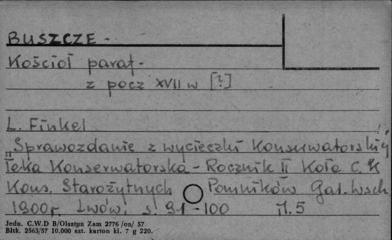 BUSZCZE -
Kościoł paraf -
z pocz XVII w [?]
L. Finkel
"Sprawozdanie z wycieczki Konserwatorskiej
Teka Konserwatorska - Rocznik II Koła C. K
Kons. Starożytnych Pomników Gal. Wsch
1900r Lwów. s. 91-100 il. 5
Jedn. C.W.D B/Olsztyn Zam 2776 /on/ 57
Bltk. 2563/57 10.000 szt. karton kl. 7 g 220.